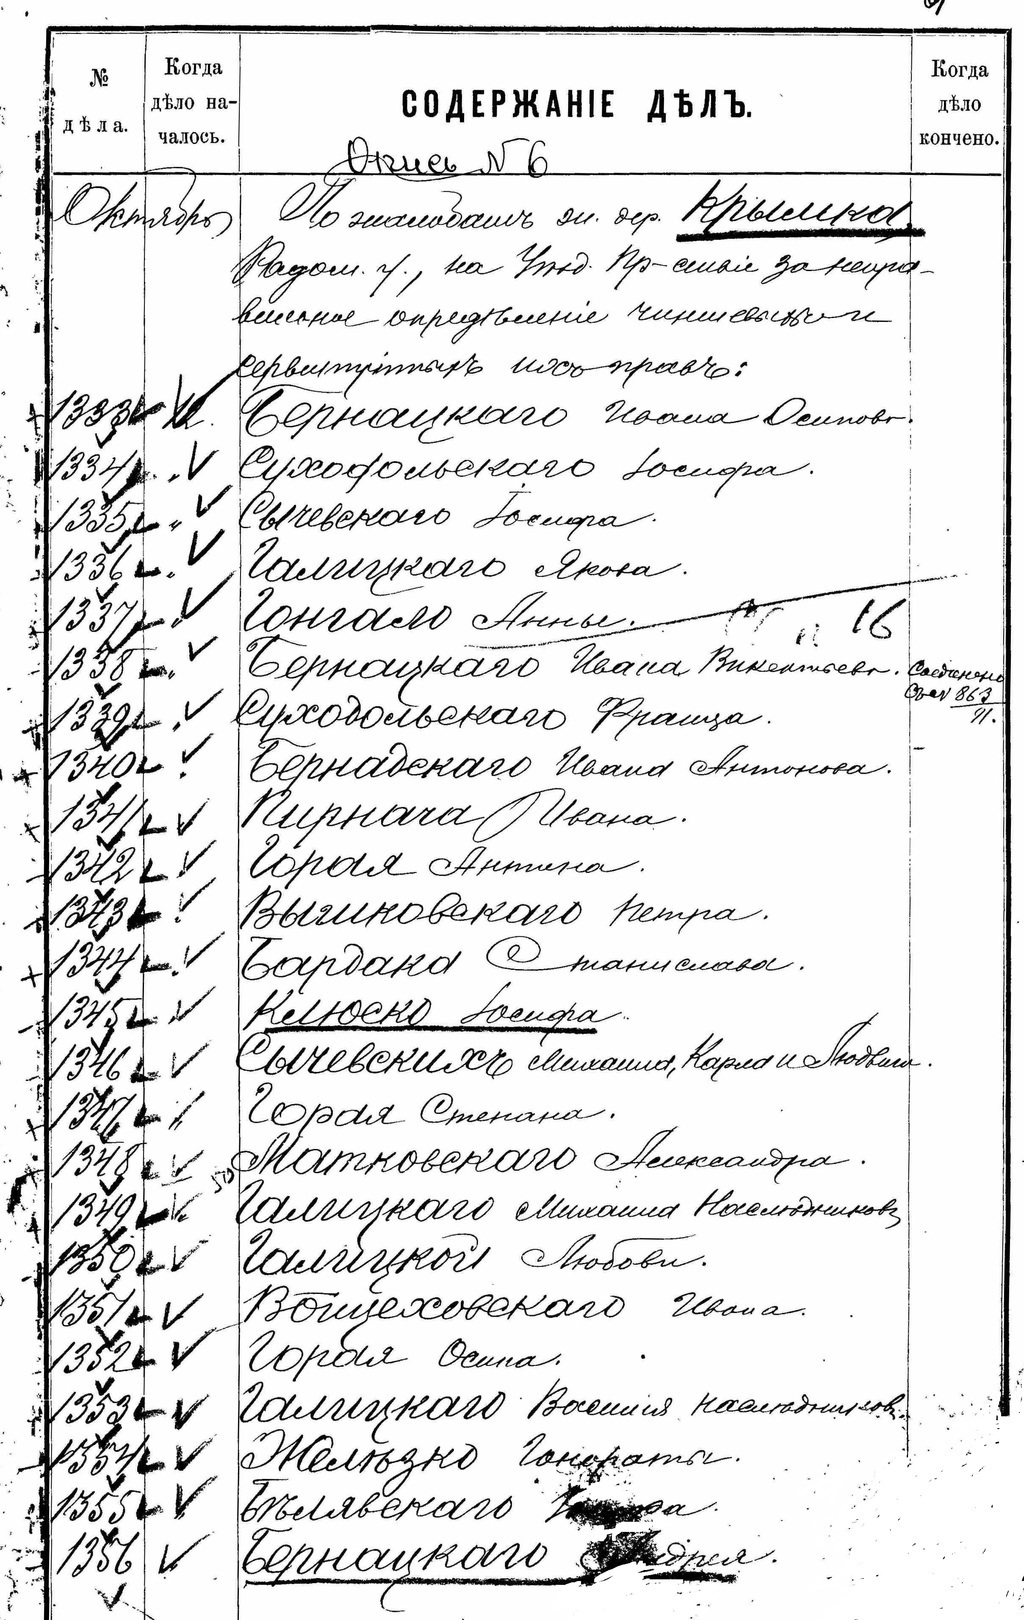 № дѣла.
Когда дѣло началось.
СОДЕРЖАНІЕ ДѢЛЪ.
Когда дѣло кончено.
Опись N 6
Октябрь
По жалобамъ жи. дер. Крымка
Радом. у., на Уѣзд. Пр-ствіе за непра-
вильное опредѣленіе чиншевыхъ и
сервитутныхъ ихъ правъ:
1333 12. Бернацкаго Ивана Осипов.
1334 Суходольскаго Іосифа.
1335 Сычевскаго Іосифа.
1336 Галицкаго Якова.
1337 Гонгало Анны. 16
1338 Бернацкаго Ивана Викентьев. Соединено
съ 863/91.
1339 Суходольскаго Франца.
1340 Бернадскаго Ивана Антонова.
1341 Пирнача Ивана.
1342 Горая Антона.
1343 Выгиковскаго Петра.
1344 Бардака Станислава.
1345 Клюско Іосифа.
1346 Сычевскихъ Михаила, Карла и Людвига.
1347 Горая Степана.
1348 Матковскаго Александра.
1349 Галицкаго Михаила Наслѣдниковъ
1350 Галицкой Любови.
1351 Войцеховскаго Ивана.
1352 Горая Осипа.
1353 Галицкаго Василія наслѣдников.
1354 Желѣзко Гонораты.
1355 Бѣлявскаго
1356 Бернацкаго Андрея.